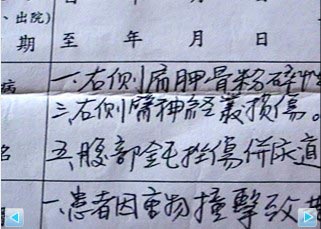 、出院)
期 至 年 月 日
病 一.右側肩胛骨粉碎性
三.右側臂神経叢損傷。
名 五.腹部鈍挫傷併尿道
一.患者因重物撞擊致